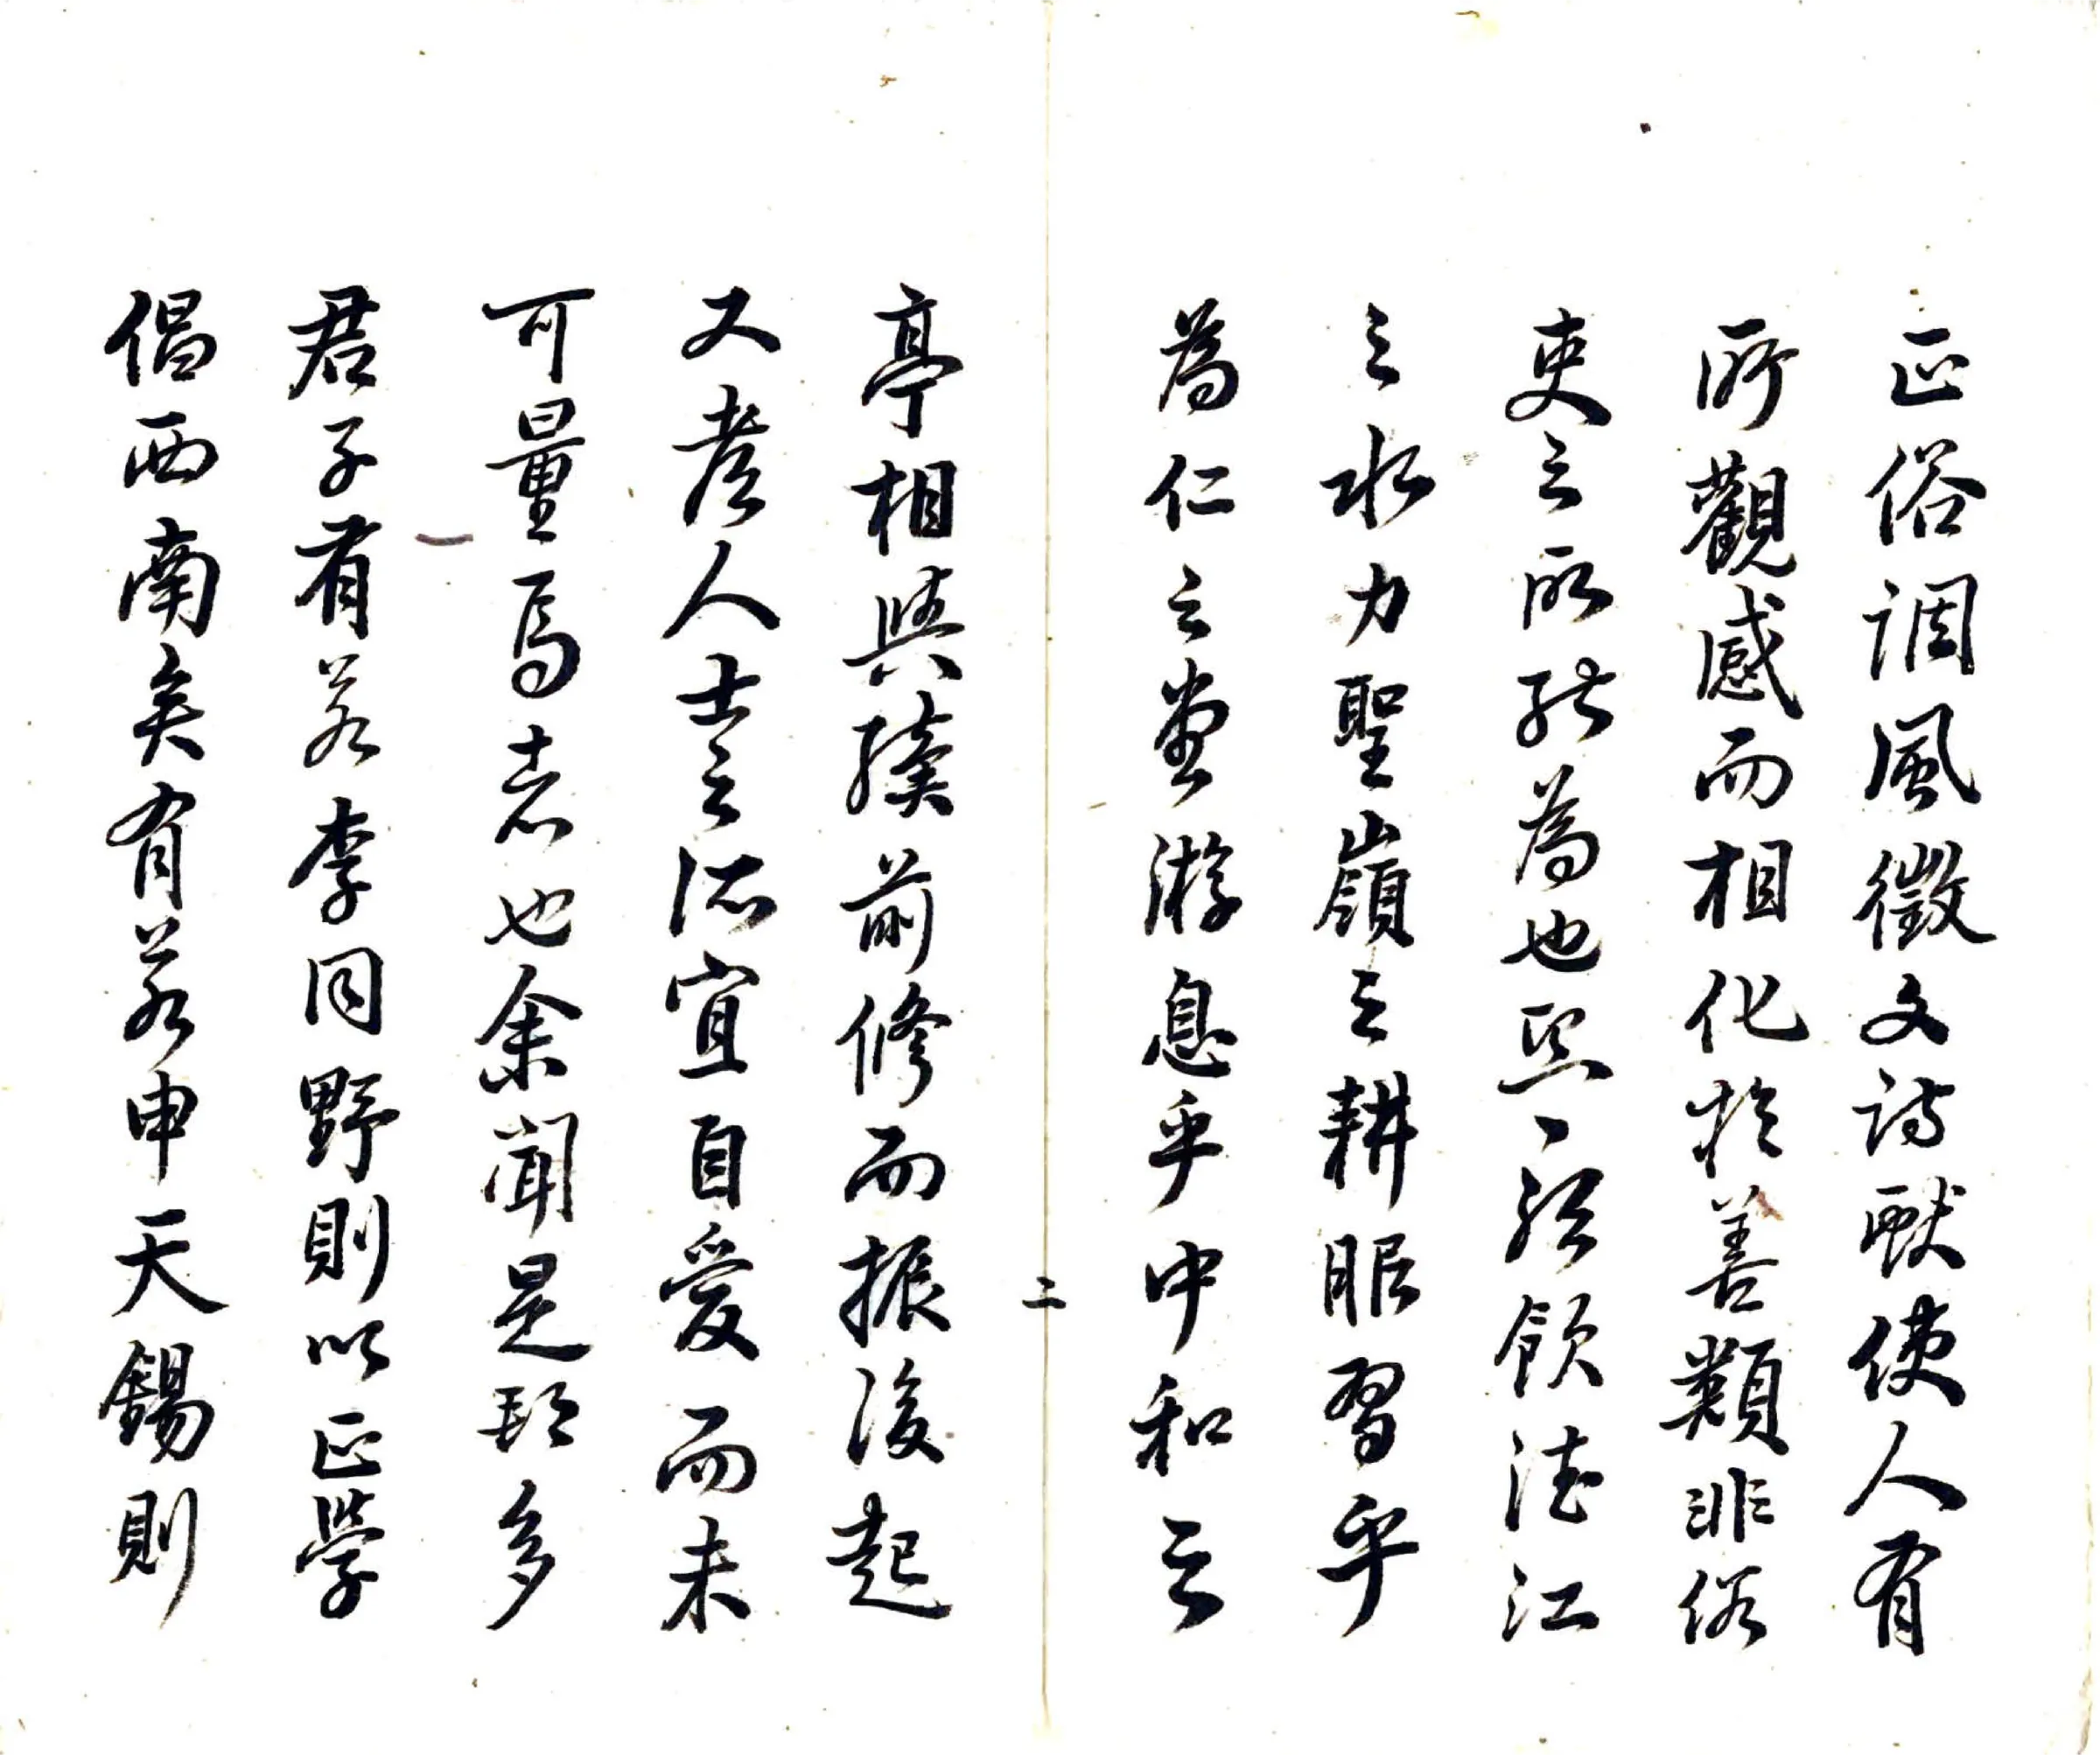 正俗調風徵文訪獻使人有
所觀感而相化於善類非俗
吏之所能為也熙熙飲德江
之水力聖嶺之耕服習乎
為仁之堂游息乎中和之
亭相與續前修而振後起
又孝人士之所宜自愛而未
可量焉者也余聞是邦多
君子有若李同野則以正學
倡西南矣有若申天錫則
二